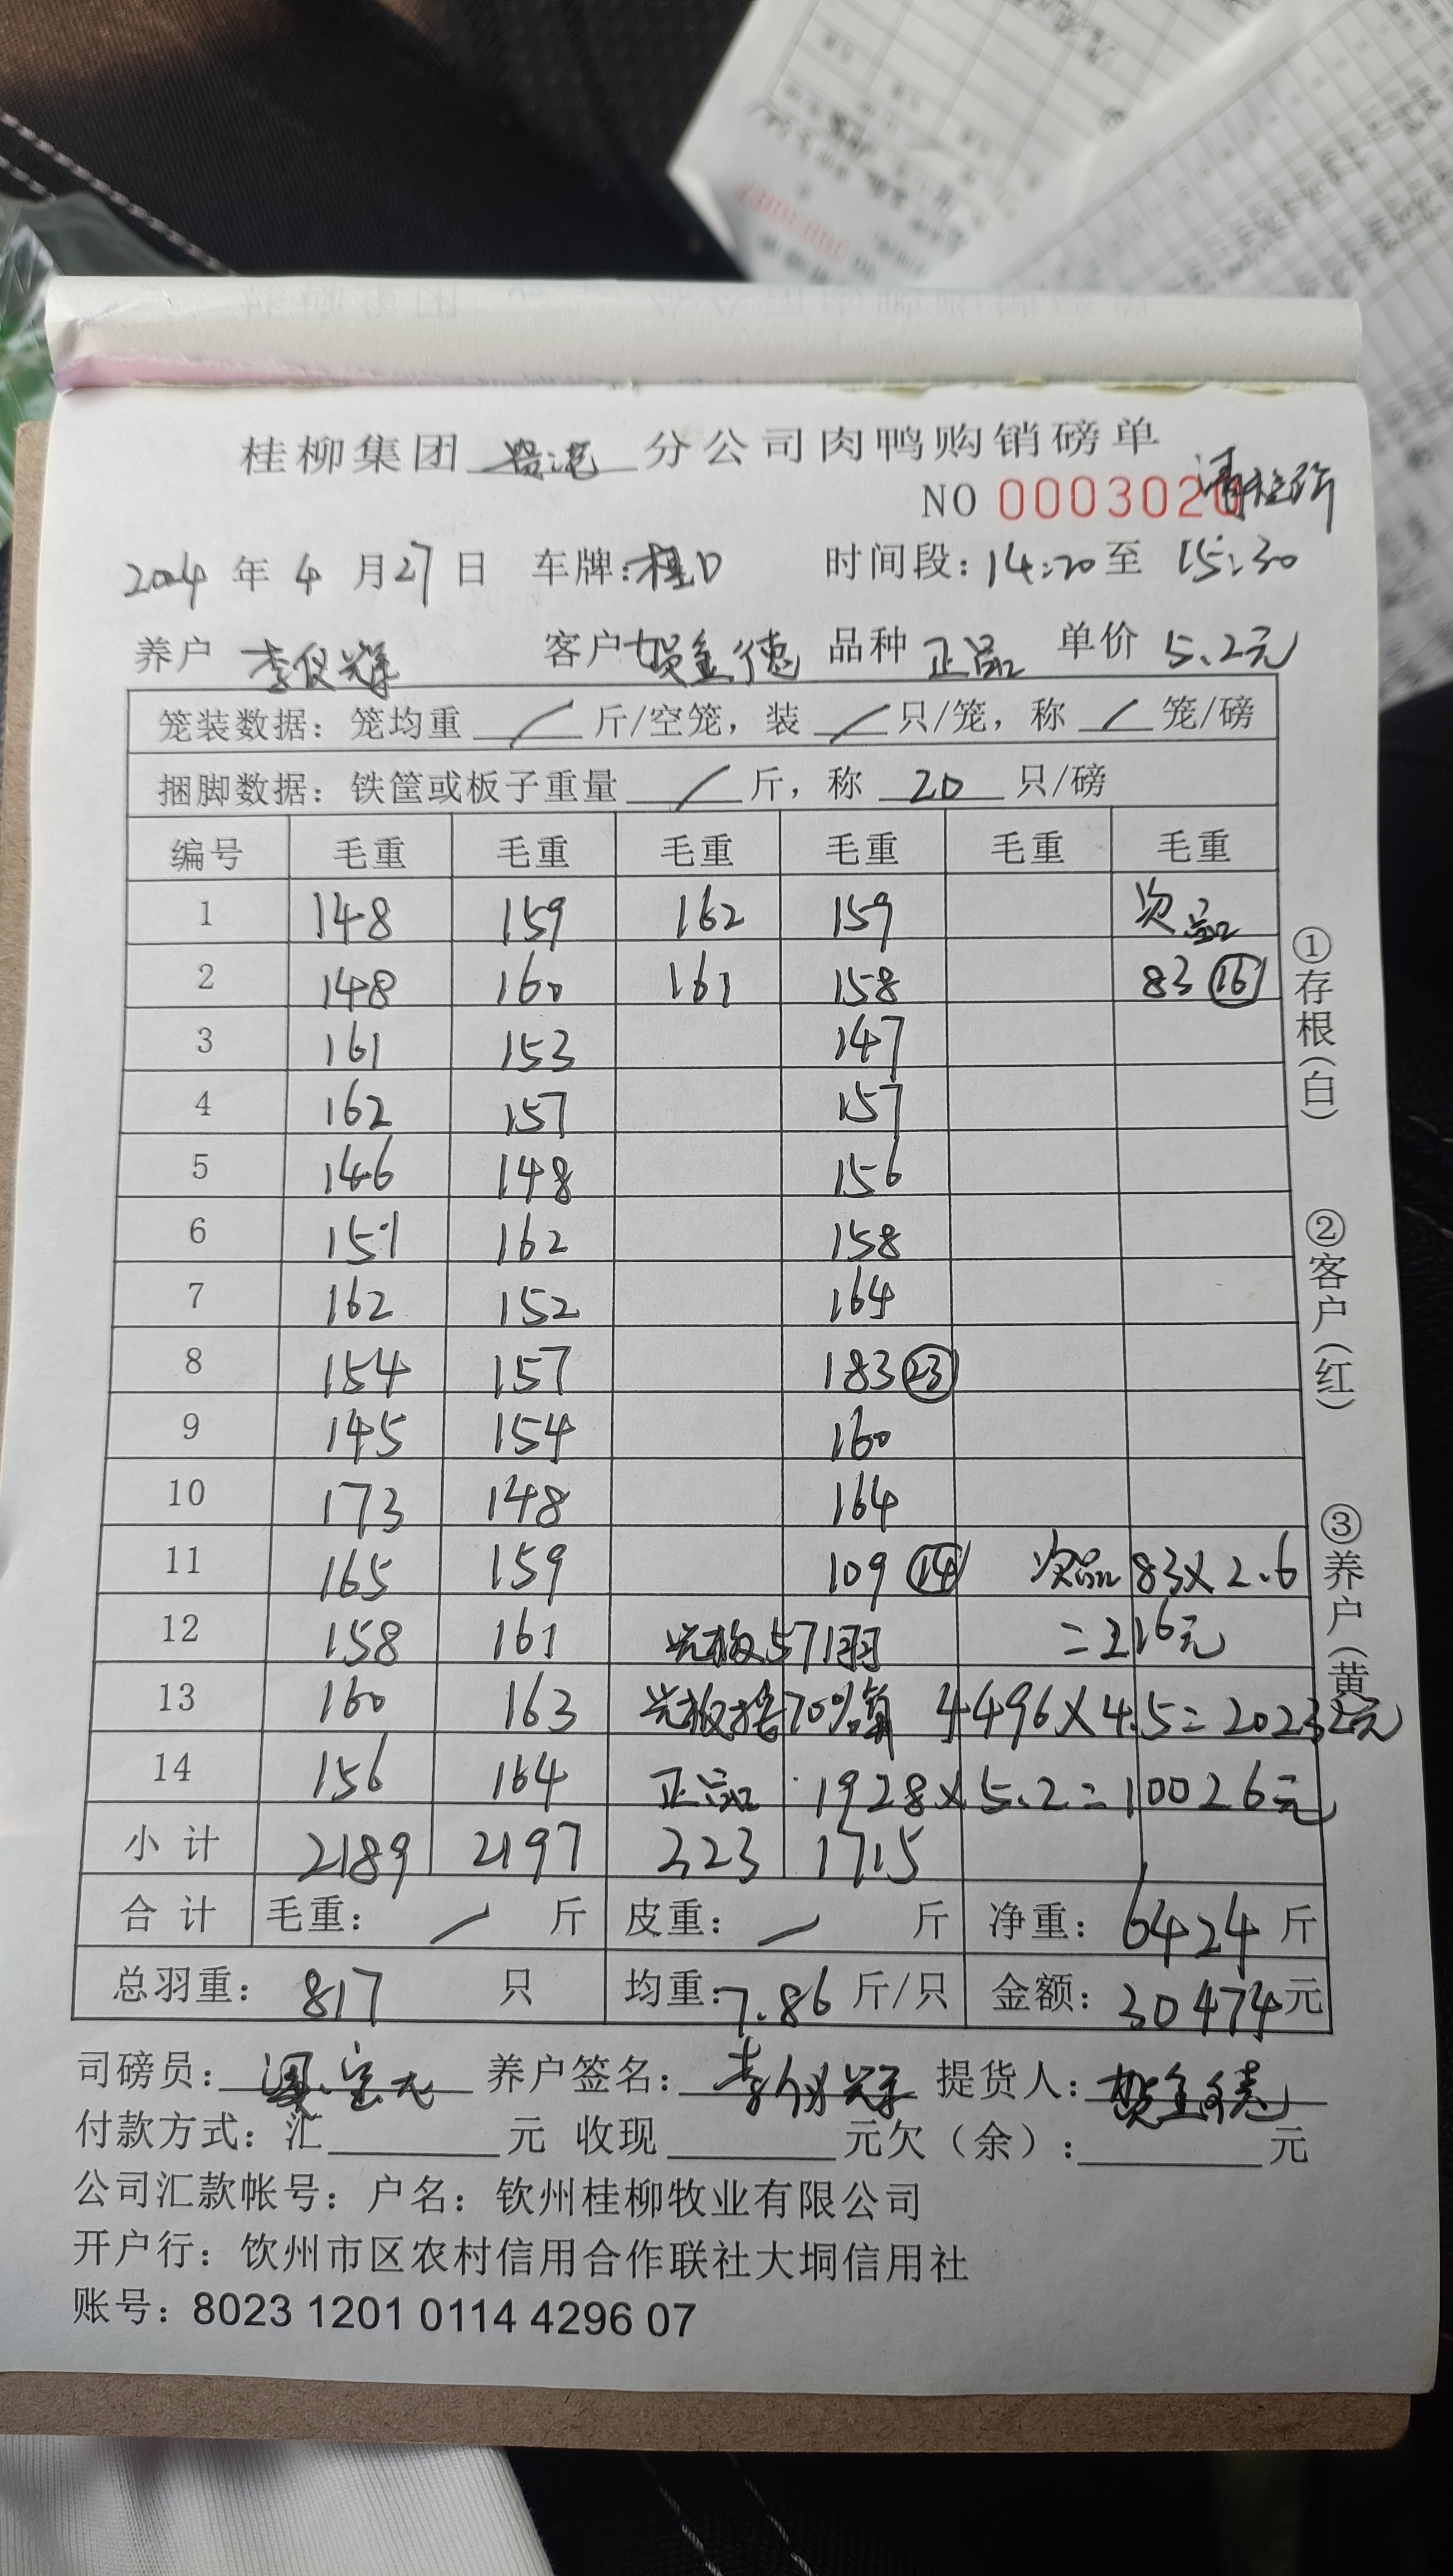 桂柳集团 贵港 分公司肉鸭购销磅单
NO 0003020 清检疗
2024 年 4 月 27 日 车牌:桂D 时间段:14:20 至 15:30
养户 李仪辉 客户 贺金德 品种 正品 单价 5.2元
笼装数据:笼均重 / 斤/空笼,装 / 只/笼,称 / 笼/磅
捆脚数据:铁筐或板子重量 / 斤,称 20 只/磅
编号 毛重 毛重 毛重 毛重 毛重 毛重
1 148 159 162 159 次品
2 148 160 161 158 83 (16)
3 161 153 147
4 162 157 157
5 146 148 156
6 151 162 158
7 162 152 164
8 154 157 183 (23)
9 145 154 160
10 173 148 164
11 165 159 109 (14) 次品 83×2.6
12 158 161 光板571羽 =216元
13 160 163 光板按70%算 4496×4.5=20232元
14 156 164 正品 1928×5.2=10026元
小计 2189 2197 323 1715
合计 毛重: / 斤 皮重: / 斤 净重: 6424 斤
总羽重: 817 只 均重:7.86 斤/只 金额: 30474元
司磅员: 养户签名: 李仪辉 提货人: 贺金德
付款方式:汇 元 收现 元欠(余): 元
公司汇款帐号:户名:钦州桂柳牧业有限公司
开户行:饮州市区农村信用合作联社大垌信用社
账号:8023 1201 0114 4296 07
①存根(白)
②客户(红)
③养户(黄)